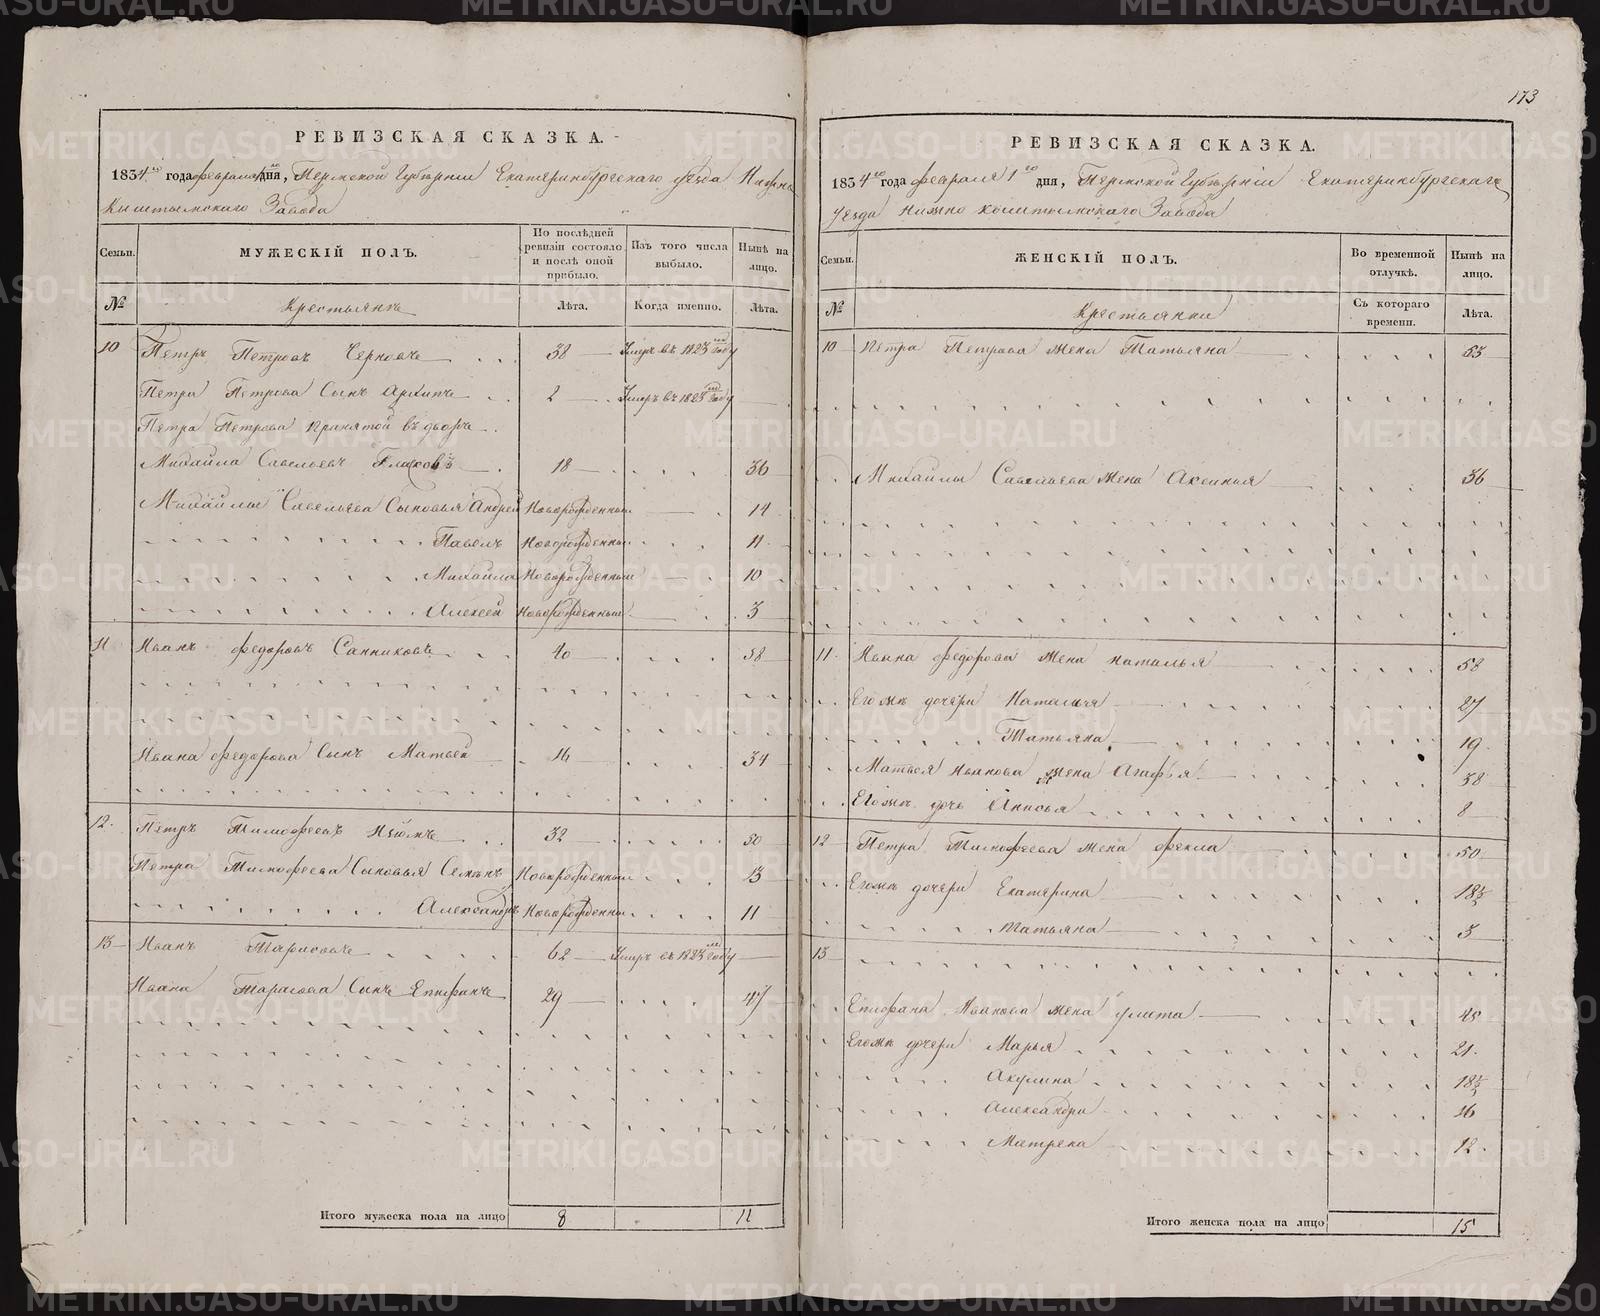 173
РЕВИЗСКАЯ СКАЗКА.
1834го года февраля 1го дня, Пермской Губернии Екатеринбургскаго уезда Нижне
Кыштымскаго Завода
Семьи.
МУЖЕСКІЙ ПОЛЪ.
По послѣдней ревизіи состояло и послѣ оной прибыло.
Изъ того числа выбыло.
Нынѣ на лицо.
№
Крестьянъ
Лѣта.
Когда именно.
Лѣта.
10 Петръ Петровъ 38 Умръ въ 1823м году
Петра Петрова Сынъ Архипъ 2 Умеръ въ 1823м году
Петра Петрова принятой въ домъ
Михайла Савельевъ 18 36
Михайлы Савельева Сыновья Андрей Новорожденный 14
Павелъ Новорожденный 11
Михайла Новорожденный 10
Алексей Новорожденный 3
11 Иванъ Федоровъ Санниковъ 40 58
Ивана Федорова Сынъ Матвей 16 34
12 Петръ Тимофеевъ 32 50
Петра Тимофеева Сыновья Семенъ Новорожденный 13
Александръ Новорожденный 11
13 Иванъ Тарасовъ 62 Умръ въ 1823м году
Ивана Тарасова Сынъ Епифанъ 29 47
Итого мужеска пола на лицо 8 11
РЕВИЗСКАЯ СКАЗКА.
1834го года февраля 1го дня, Пермской Губерніи Екатеринбургскаго
уезда Нижно Кыштымскаго Завода
Семьи.
ЖЕНСКІЙ ПОЛЪ.
Во временной отлучкѣ.
Нынѣ на лицо.
№
Крестьянки
Съ котораго времени.
Лѣта.
10 Петра Петрова жена Татьяна 53
Михайлы Савельева жена Аксинья 36
11 Ивана Федорова жена Наталья 58
Егожъ дочери Наталья 27
Татьяна 19
Матвея Иванова жена Агафья 38
Егожъ дочь Анисья 8
12 Петра Тимофеева жена Фекла 50
Егожъ дочери Екатерина 18½
Татьяна 3
13
Епифана Иванова жена Улита 45
Егожъ дочери Марья 21
Акулина 18½
Александра 16
Матрена 12
Итого женска пола на лицо 15
METRIKI.GASO-URAL.RU